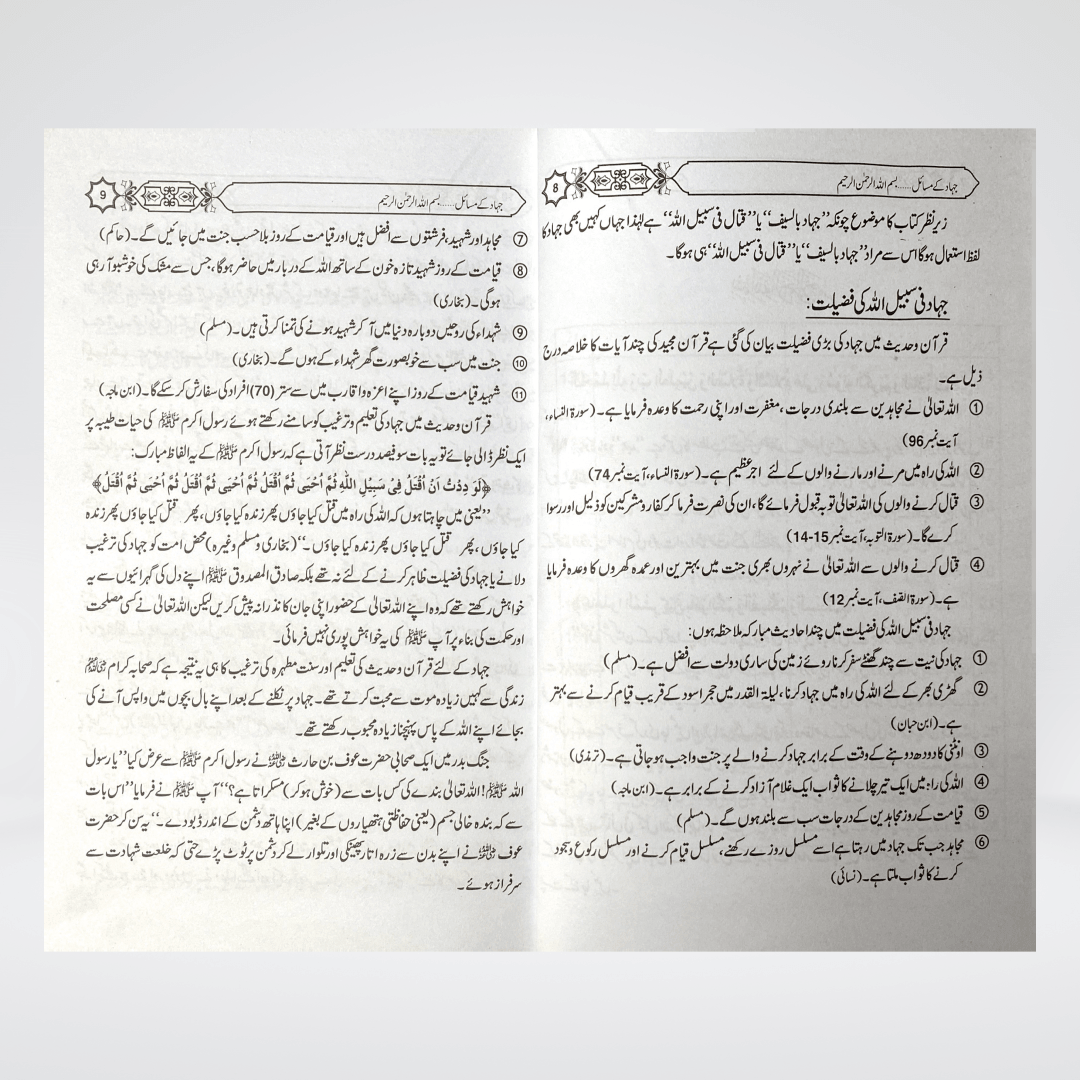 جہاد کے مسائل......بسم اللہ الرحمٰن الرحیم
8
زیر نظر کتاب کا موضوع چونکہ ’’جہاد بالسیف‘‘ یا ’’قتال فی سبیل اللہ‘‘ ہے لہٰذا جہاں کہیں بھی جہاد کا
لفظ استعمال ہوگا اس سے مراد ’’جہاد بالسیف‘‘ یا ’’قتال فی سبیل اللہ‘‘ ہی ہوگا۔
جہاد فی سبیل اللہ کی فضیلت:
قرآن وحدیث میں جہاد کی بڑی فضیلت بیان کی گئی ہے قرآن مجید کی چند آیات کا خلاصہ درج
ذیل ہے۔
① اللہ تعالیٰ نے مجاہدین سے بلندی درجات، مغفرت اور اپنی رحمت کا وعدہ فرمایا ہے۔ (سورۃ النساء،
آیت نمبر 96)
② اللہ کی راہ میں مرنے اور مارنے والوں کے لئے اجر عظیم ہے۔ (سورۃ النساء، آیت نمبر 74)
③ قتال کرنے والوں کی اللہ تعالیٰ توبہ قبول فرمائے گا، ان کی نصرت فرما کر کفار و مشرکین کو ذلیل اور رسوا
کرے گا۔ (سورۃ التوبہ، آیت نمبر 15-14)
④ قتال کرنے والوں سے اللہ تعالیٰ نے نہروں بھری جنت میں بہترین اور عمدہ گھروں کا وعدہ فرمایا
ہے۔ (سورۃ الصف، آیت نمبر 12)
جہاد فی سبیل اللہ کی فضیلت میں چند احادیث مبارکہ ملاحظہ ہوں:
① جہاد کی نیت سے چند گھنٹے سفر کرنا روئے زمین کی ساری دولت سے افضل ہے۔ (مسلم)
② گھڑی بھر کے لئے اللہ کی راہ میں جہاد کرنا، لیلۃ القدر میں حجر اسود کے قریب قیام کرنے سے بہتر
ہے۔ (ابن حبان)
③ اونٹنی کا دودھ دوہنے کے وقت کے برابر جہاد کرنے والے پر جنت واجب ہو جاتی ہے۔ (ترمذی)
④ اللہ کی راہ میں ایک تیر چلانے کا ثواب ایک غلام آزاد کرنے کے برابر ہے۔ (ابن ماجہ)
⑤ قیامت کے روز مجاہدین کے درجات سب سے بلند ہوں گے۔ (مسلم)
⑥ مجاہد جب تک جہاد میں رہتا ہے اسے مسلسل روزے رکھنے، مسلسل قیام کرنے اور مسلسل رکوع و سجود
کرنے کا ثواب ملتا ہے۔ (نسائی)
جہاد کے مسائل......بسم اللہ الرحمٰن الرحیم
9
⑦ مجاہد اور شہید، فرشتوں سے افضل ہیں اور قیامت کے روز بلا حساب جنت میں جائیں گے۔ (حاکم)
⑧ قیامت کے روز شہید تازہ خون کے ساتھ اللہ کے دربار میں حاضر ہوگا، جس سے مشک کی خوشبو آ رہی
ہوگی۔ (بخاری)
⑨ شہداء کی روحیں دوبارہ دنیا میں آ کر شہید ہونے کی تمنا کرتی ہیں۔ (مسلم)
⑩ جنت میں سب سے خوبصورت گھر شہداء کے ہوں گے۔ (بخاری)
⑪ شہید قیامت کے روز اپنے اعزہ واقارب میں سے ستر (70) افراد کی سفارش کر سکے گا۔ (ابن ماجہ)
قرآن وحدیث میں جہاد کی تعلیم وترغیب کو سامنے رکھتے ہوئے رسول اکرم ﷺ کی حیات طیبہ پر
ایک نظر ڈالی جائے تو یہ بات سو فیصد درست نظر آتی ہے کہ رسول اکرم ﷺ کے یہ الفاظ مبارک:
﴿لَوَدِدْتُ اَنْ اُقْتَلُ فِیْ سَبِیْلِ اللّٰہِ ثُمَّ اُحْیٰی ثُمَّ اُقْتَلُ ثُمَّ اُحْیٰی ثُمَّ اُقْتَلُ ثُمَّ اُحْیٰی ثُمَّ اُقْتَلُ﴾
’’یعنی میں چاہتا ہوں کہ اللہ کی راہ میں قتل کیا جاؤں پھر زندہ کیا جاؤں، پھر قتل کیا جاؤں پھر زندہ
کیا جاؤں، پھر قتل کیا جاؤں پھر زندہ کیا جاؤں۔‘‘ (بخاری و مسلم وغیرہ) محض امت کو جہاد کی ترغیب
دلانے یا جہاد کی فضیلت ظاہر کرنے کے لئے نہ تھے بلکہ صادق المصدوق ﷺ اپنے دل کی گہرائیوں سے یہ
خواہش رکھتے تھے کہ وہ اپنے اللہ تعالیٰ کے حضور اپنی جان کا نذرانہ پیش کریں لیکن اللہ تعالیٰ نے کسی مصلحت
اور حکمت کی بناء پر آپ ﷺ کی یہ خواہش پوری نہیں فرمائی۔
جہاد کے لئے قرآن وحدیث کی تعلیم اور سنت مطہرہ کی ترغیب کا ہی یہ نتیجہ ہے کہ صحابہ کرام ﷢
زندگی سے کہیں زیادہ موت سے محبت کرتے تھے۔ جہاد پر نکلنے کے بعد اپنے بال بچوں میں واپس آنے کی
بجائے اپنے اللہ کے پاس پہنچنا زیادہ محبوب رکھتے تھے۔
جنگ بدر میں ایک صحابی حضرت عوف بن حارث ﷜ نے رسول اکرم ﷺ سے عرض کیا ’’یا رسول
اللہ ﷺ! اللہ تعالیٰ بندے کی کس بات سے (خوش ہو کر) مسکراتا ہے؟‘‘ آپ ﷺ نے فرمایا ’’اس بات
سے کہ بندہ خالی جسم (یعنی حفاظتی ہتھیاروں کے بغیر) اپنا ہاتھ دشمن کے اندر ڈبو دے۔‘‘ یہ سن کر حضرت
عوف ﷜ نے اپنے بدن سے زرہ اتار پھینکی اور تلوار لے کر دشمن پر ٹوٹ پڑے حتی کہ خلعت شہادت سے
سرفراز ہوئے۔